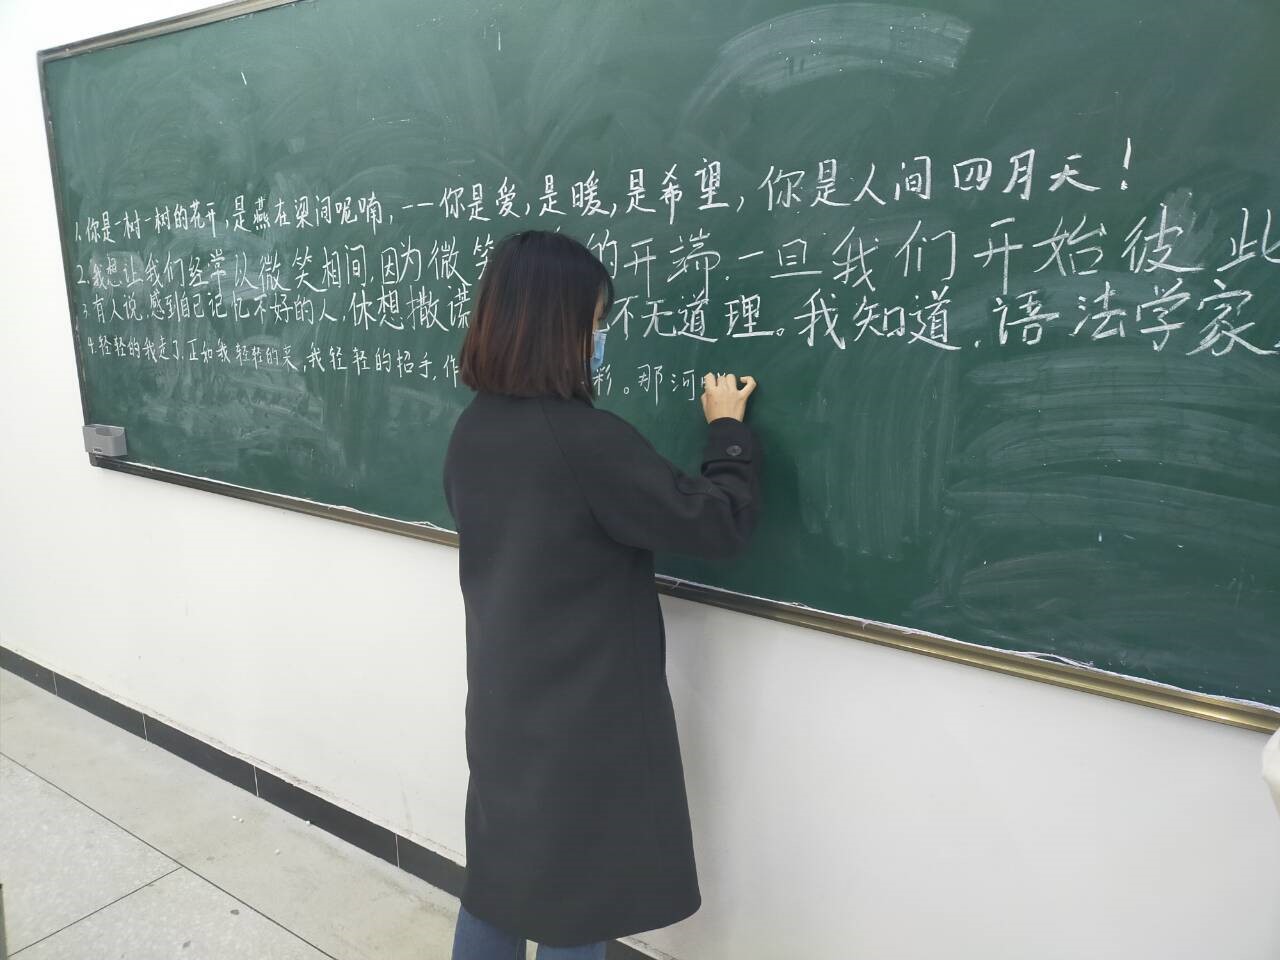 1.你是一树一树的花开,是燕在梁间呢喃,——你是爱,是暖,是希望,你是人间四月天!
2.我想让我们经常以微笑相间,因为微笑 的开端.一旦我们开始彼此
3.有人说,感到自己记忆不好的人,休想撒谎 不无道理。我知道,语法学家
4.轻轻的我走了,正如我轻轻的来,我轻轻的招手,作 彩。那河